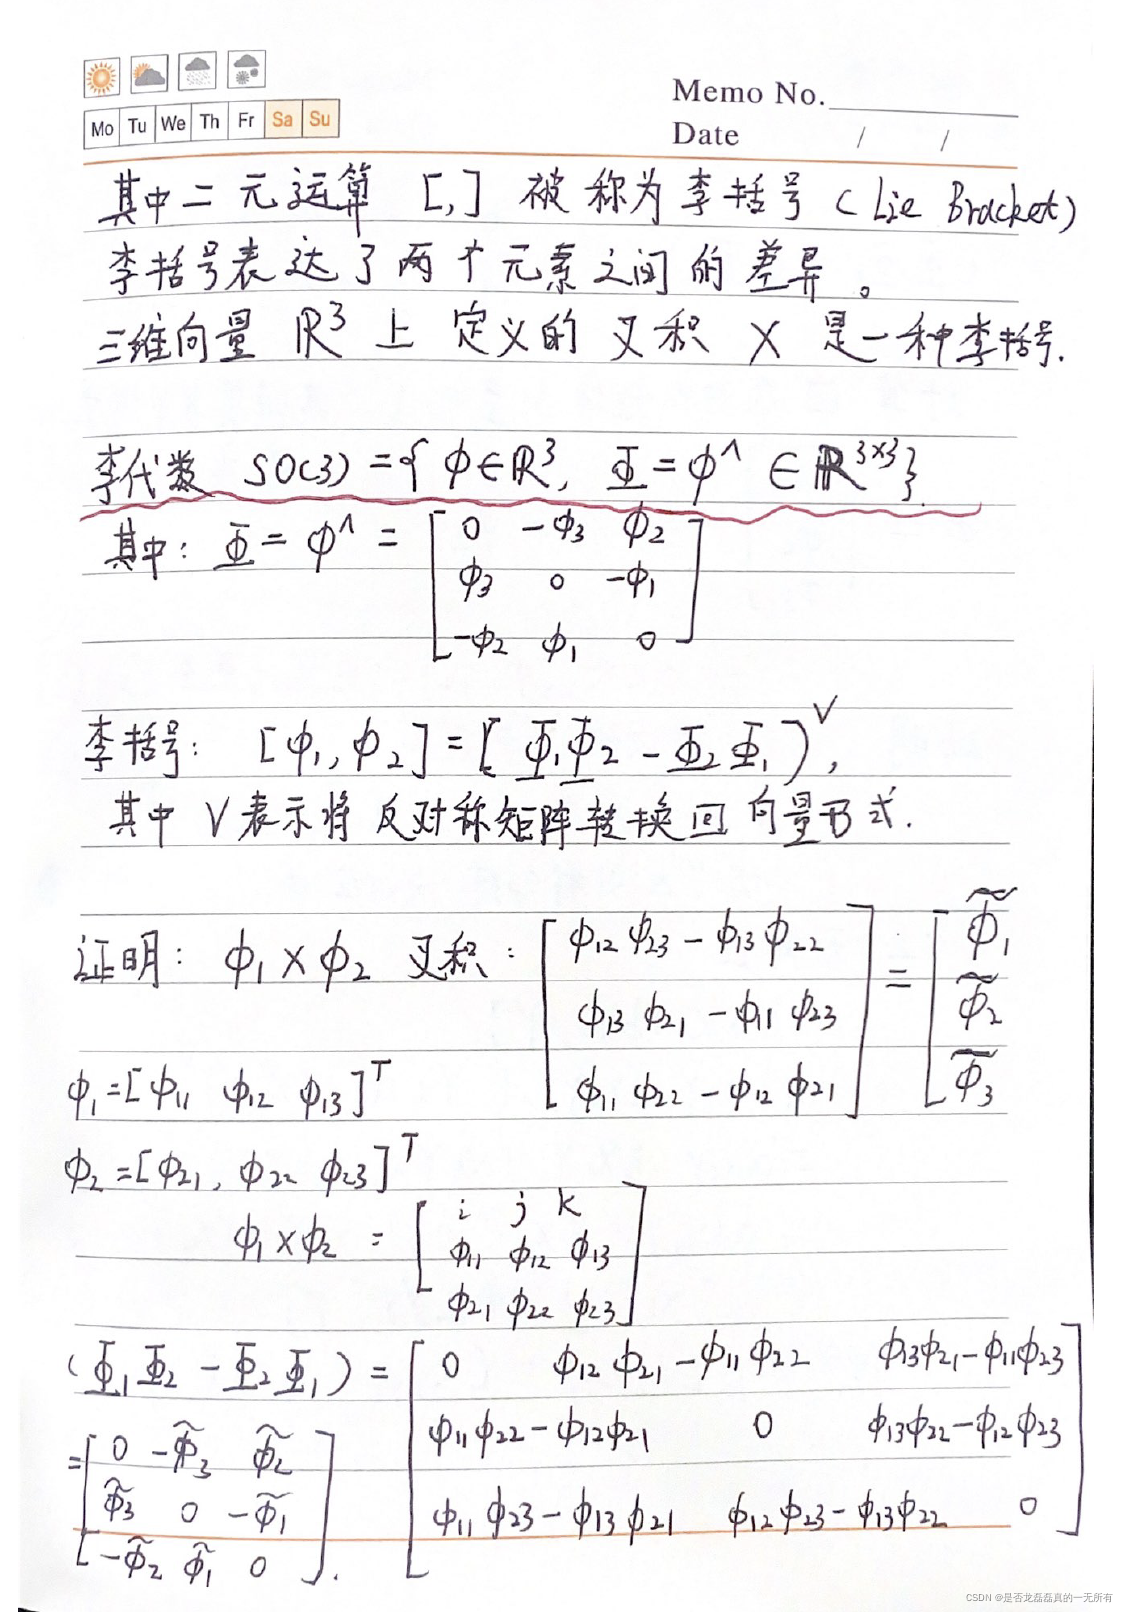 Mo Tu We Th Fr Sa Su
Memo No.
Date / /
其中二元运算 [,] 被称为李括号 (Lie Bracket)
李括号表达了两个元素之间的差异。
三维向量 ℝ³ 上定义的叉积 × 是一种李括号.
李代数 SO(3) = { ϕ∈ℝ³, Φ = ϕ^ ∈ ℝ³ˣ³ }
其中: Φ = ϕ^ = [ 0 -ϕ₃ ϕ₂
ϕ₃ 0 -ϕ₁
-ϕ₂ ϕ₁ 0 ]
李括号: [ϕ₁, ϕ₂] = [ Φ₁Φ₂ - Φ₂Φ₁ )ⱽ,
其中 V 表示将反对称矩阵转换回向量形式.
证明: ϕ₁×ϕ₂ 叉积: [ ϕ₁₂ϕ₂₃ - ϕ₁₃ϕ₂₂
ϕ₁₃ϕ₂₁ - ϕ₁₁ϕ₂₃
ϕ₁₁ϕ₂₂ - ϕ₁₂ϕ₂₁ ] = [ ϕ̃₁
ϕ̃₂
ϕ̃₃ ]
ϕ₁=[ϕ₁₁ ϕ₁₂ ϕ₁₃]ᵀ
ϕ₂=[ϕ₂₁, ϕ₂₂ ϕ₂₃]ᵀ
ϕ₁×ϕ₂ = [ i j k
ϕ₁₁ ϕ₁₂ ϕ₁₃
ϕ₂₁ ϕ₂₂ ϕ₂₃ ]
(Φ₁Φ₂ - Φ₂Φ₁) = [ 0 ϕ₁₂ϕ₂₁-ϕ₁₁ϕ₂₂ ϕ₁₃ϕ₂₁-ϕ₁₁ϕ₂₃
ϕ₁₁ϕ₂₂-ϕ₁₂ϕ₂₁ 0 ϕ₁₃ϕ₂₂-ϕ₁₂ϕ₂₃
ϕ₁₁ϕ₂₃-ϕ₁₃ϕ₂₁ ϕ₁₂ϕ₂₃-ϕ₁₃ϕ₂₂ 0 ]
=[ 0 -ϕ̃₃ ϕ̃₂
ϕ̃₃ 0 -ϕ̃₁
-ϕ̃₂ ϕ̃₁ 0 ].
CSDN @是否龙磊磊真的一无所有